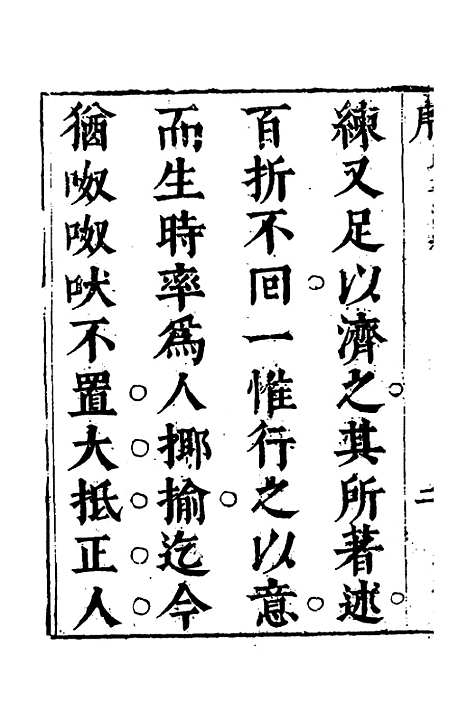 練又足以濟之其所著述
百折不回一惟行之以意
而生時率爲人揶揄迄今
猶呶呶吠不置大抵正人
二